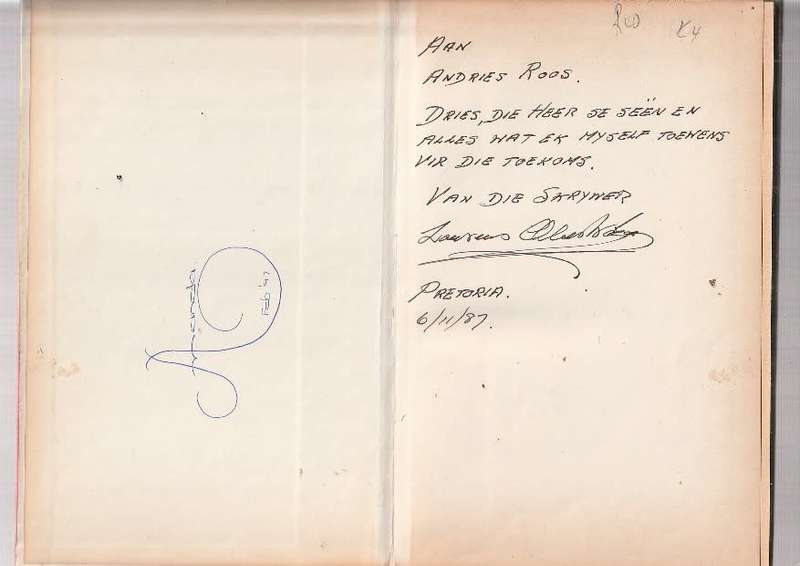 Feb '97
R40 K4
AAN
ANDRIES ROOS.
DRIES, DIE HEER SE SEËN EN
ALLES WAT EK MYSELF TOEWENS
VIR DIE TOEKOMS.
VAN DIE SKRYWER
Laurens
PRETORIA.
6/11/87.